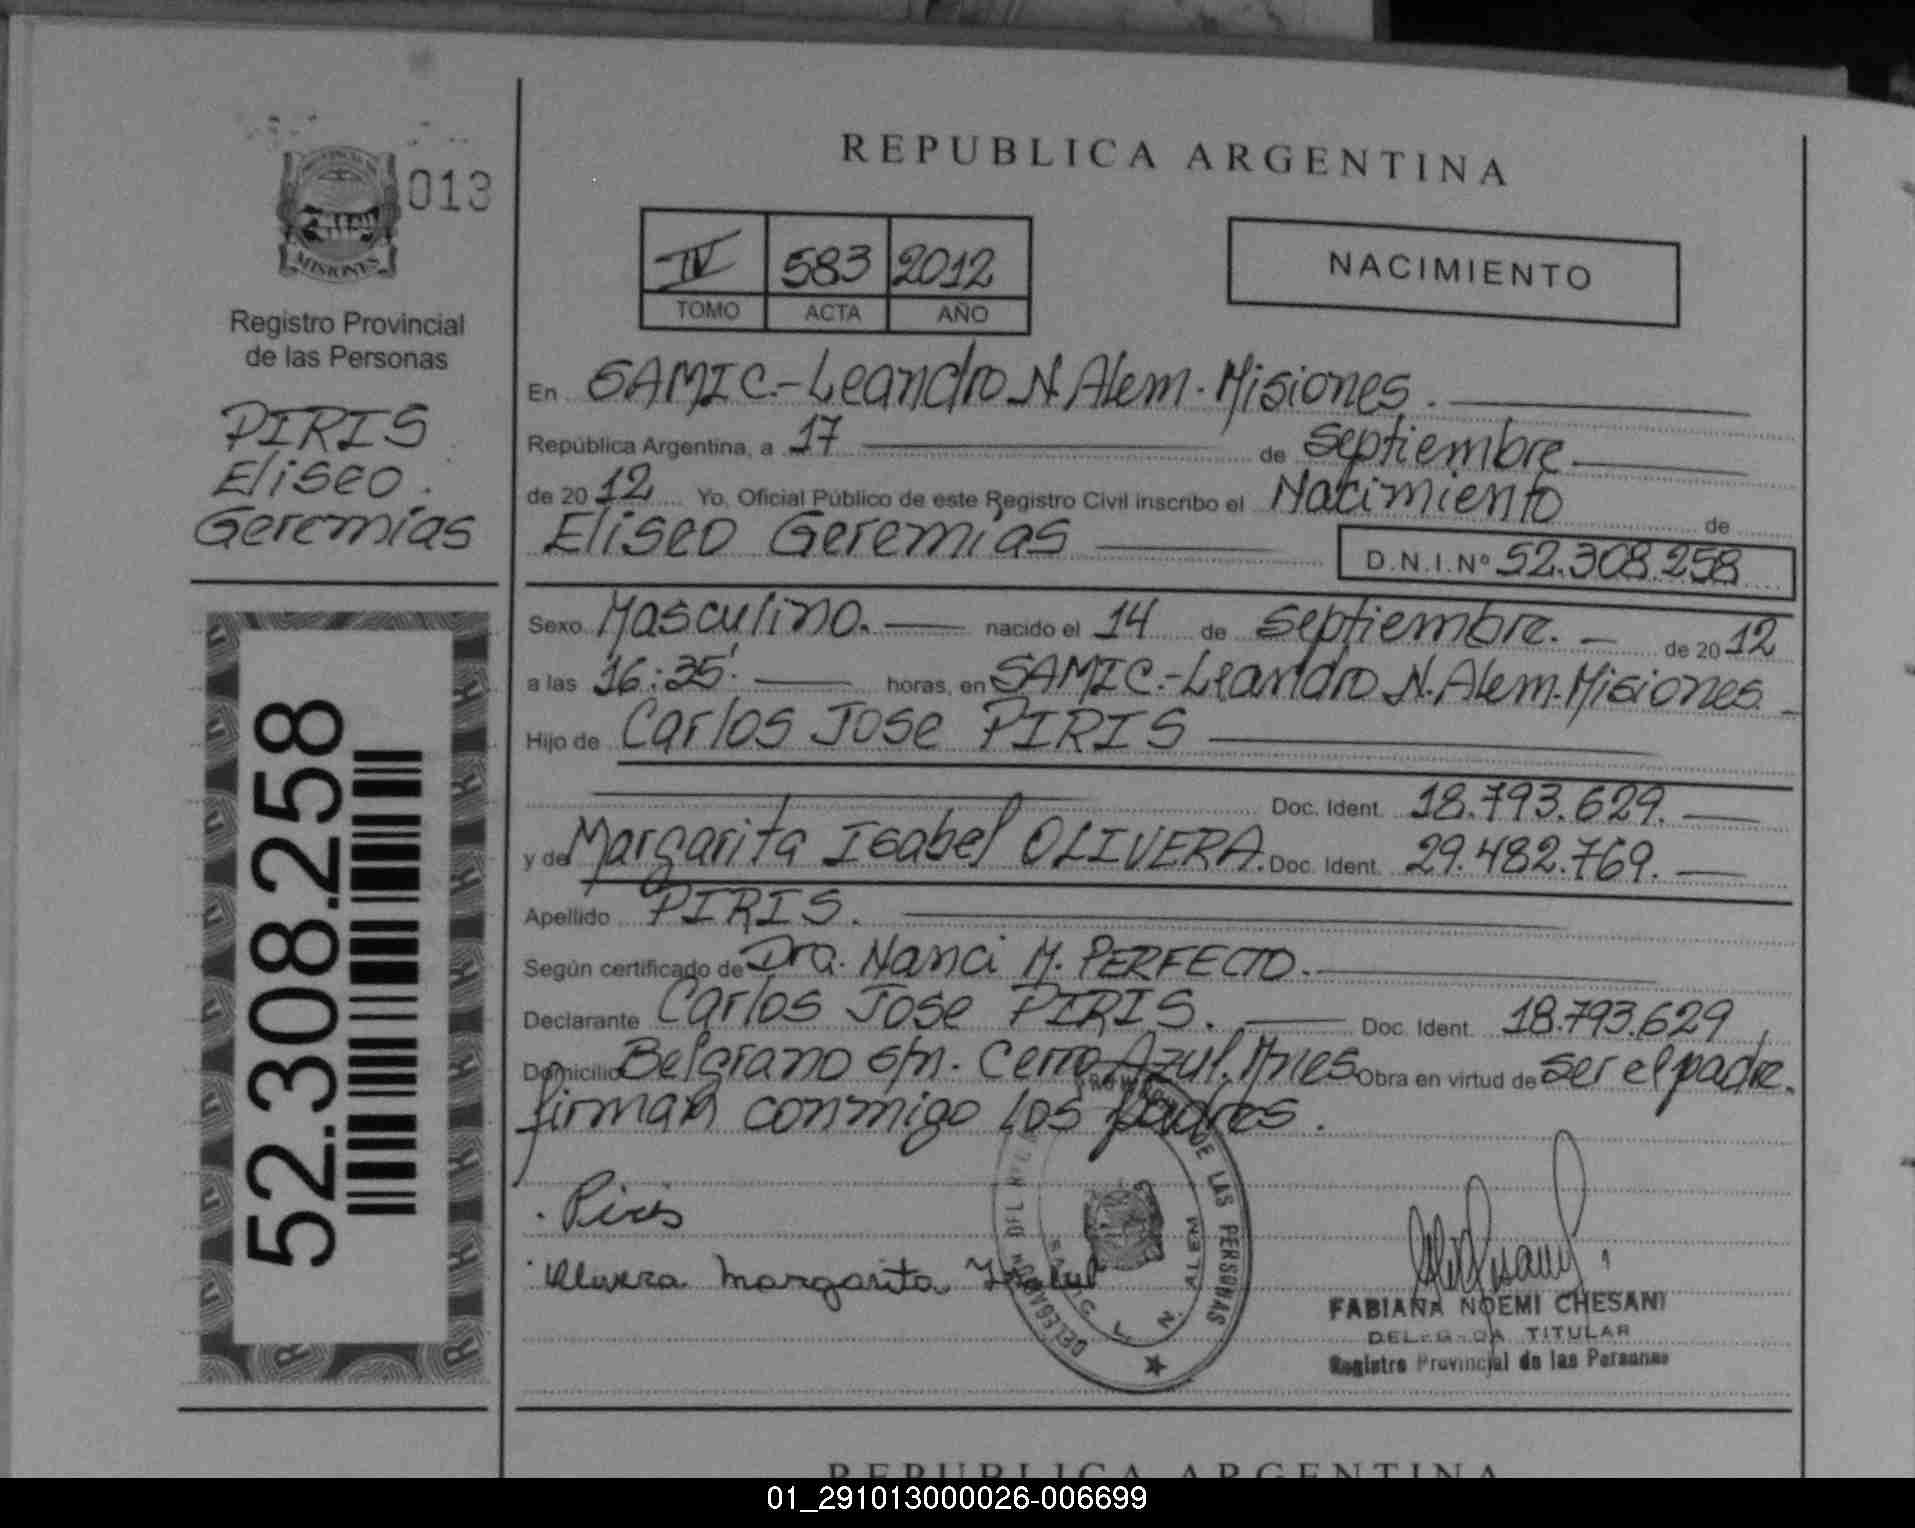 REPUBLICA ARGENTINA
013
MISIONES
Registro Provincial
de las Personas
PIRIS
Eliseo.
Geremías
52.308.258
IV 583 2012
TOMO ACTA AÑO
NACIMIENTO
En SAMIC.-Leandro N. Alem.-Misiones.
República Argentina, a 17 de septiembre
de 2012 Yo, Oficial Público de este Registro Civil inscribo el Nacimiento de
Eliseo Geremías D.N.I.Nº 52.308.258
Sexo Masculino. nacido el 14 de septiembre. de 2012
a las 16:35'. horas, en SAMIC.-Leandro N. Alem.-Misiones.
Hijo de Carlos Jose PIRIS
Doc. Ident. 18.793.629.
y de Margarita Isabel OLIVERA. Doc. Ident. 29.482.769.
Apellido PIRIS.
Según certificado de Dra. Nanci M. PERFECTO.
Declarante Carlos Jose PIRIS. Doc. Ident. 18.793.629
Domicilio Belgrano s/n. Cerro Azul. Mnes Obra en virtud de ser el padre.
firman conmigo los padres.
Piris
Olivera Margarita Isabel
DE LAS PERSONAS
L. N. ALEM
FABIANA NOEMI CHESANI
DELEGADA TITULAR
Registro Provincial de las Personas
REPUBLICA ARGENTINA
01_291013000026-006699